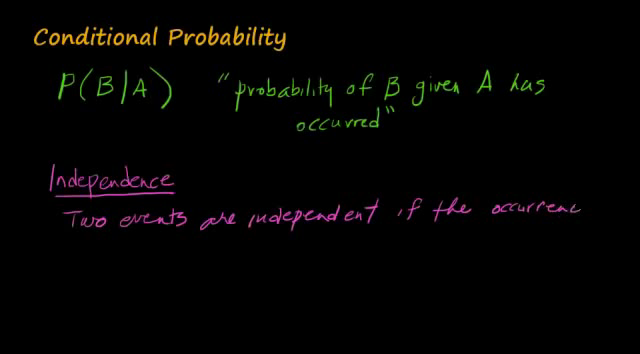 Conditional Probability
P(B/A) "probability of B given A has
occurred"
Independence
Two events are independent if the occurrenc